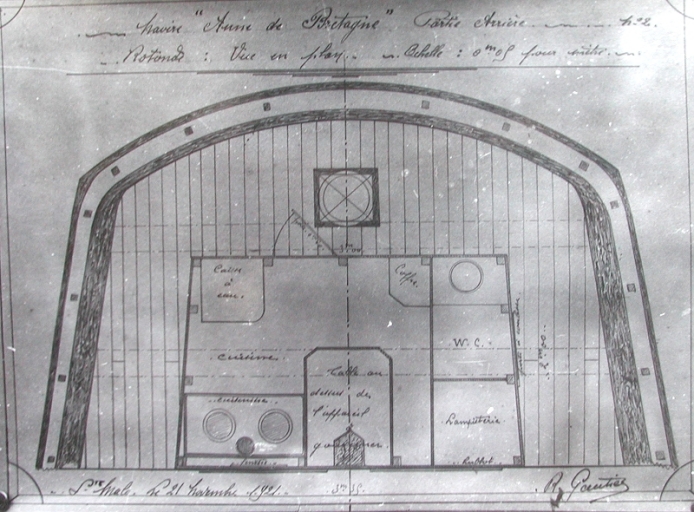 Navire "Anne de Bretagne" Partie Arrière. N°2.
Rotonde : Vue en plan. Echelle : 0m05 pour mètre.
Caisse
à
eau.
Coffre
cuisine
W.C.
Table au
dessus de
l'appareil
à gouverner.
cuisinière
Lampisterie
St Malo, le 21 novembre 1921
R. Gautier